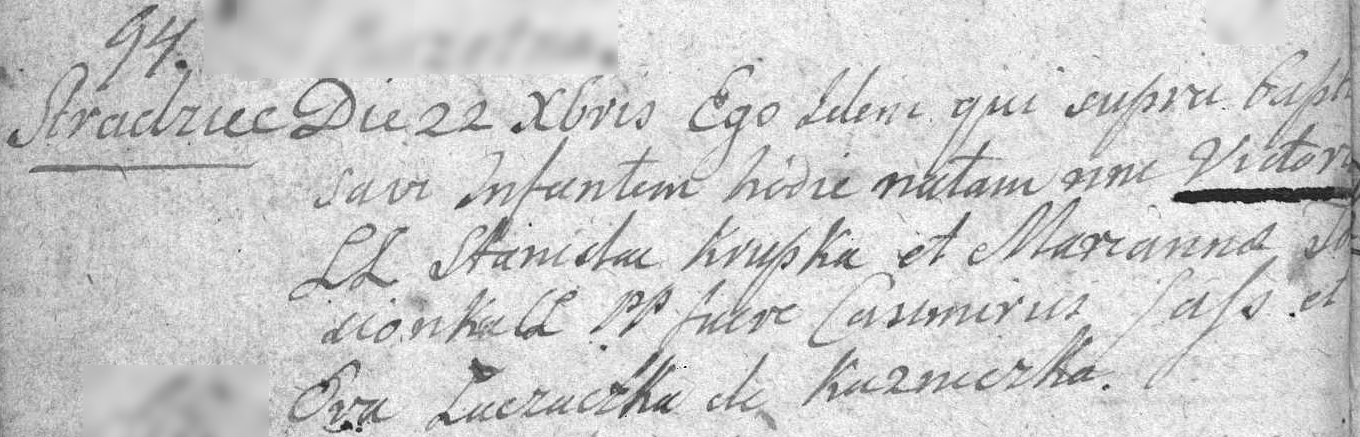 94.
Stradziec Die 22 Xbris Ego Idem qui supra bapti
savi Infantem hodie natam nne Victori
LL Stanislai Krupka et Marianna
sionka LL PP fuere Casimirus Sass et
Eva Zaczaczka de Kuzniczka.